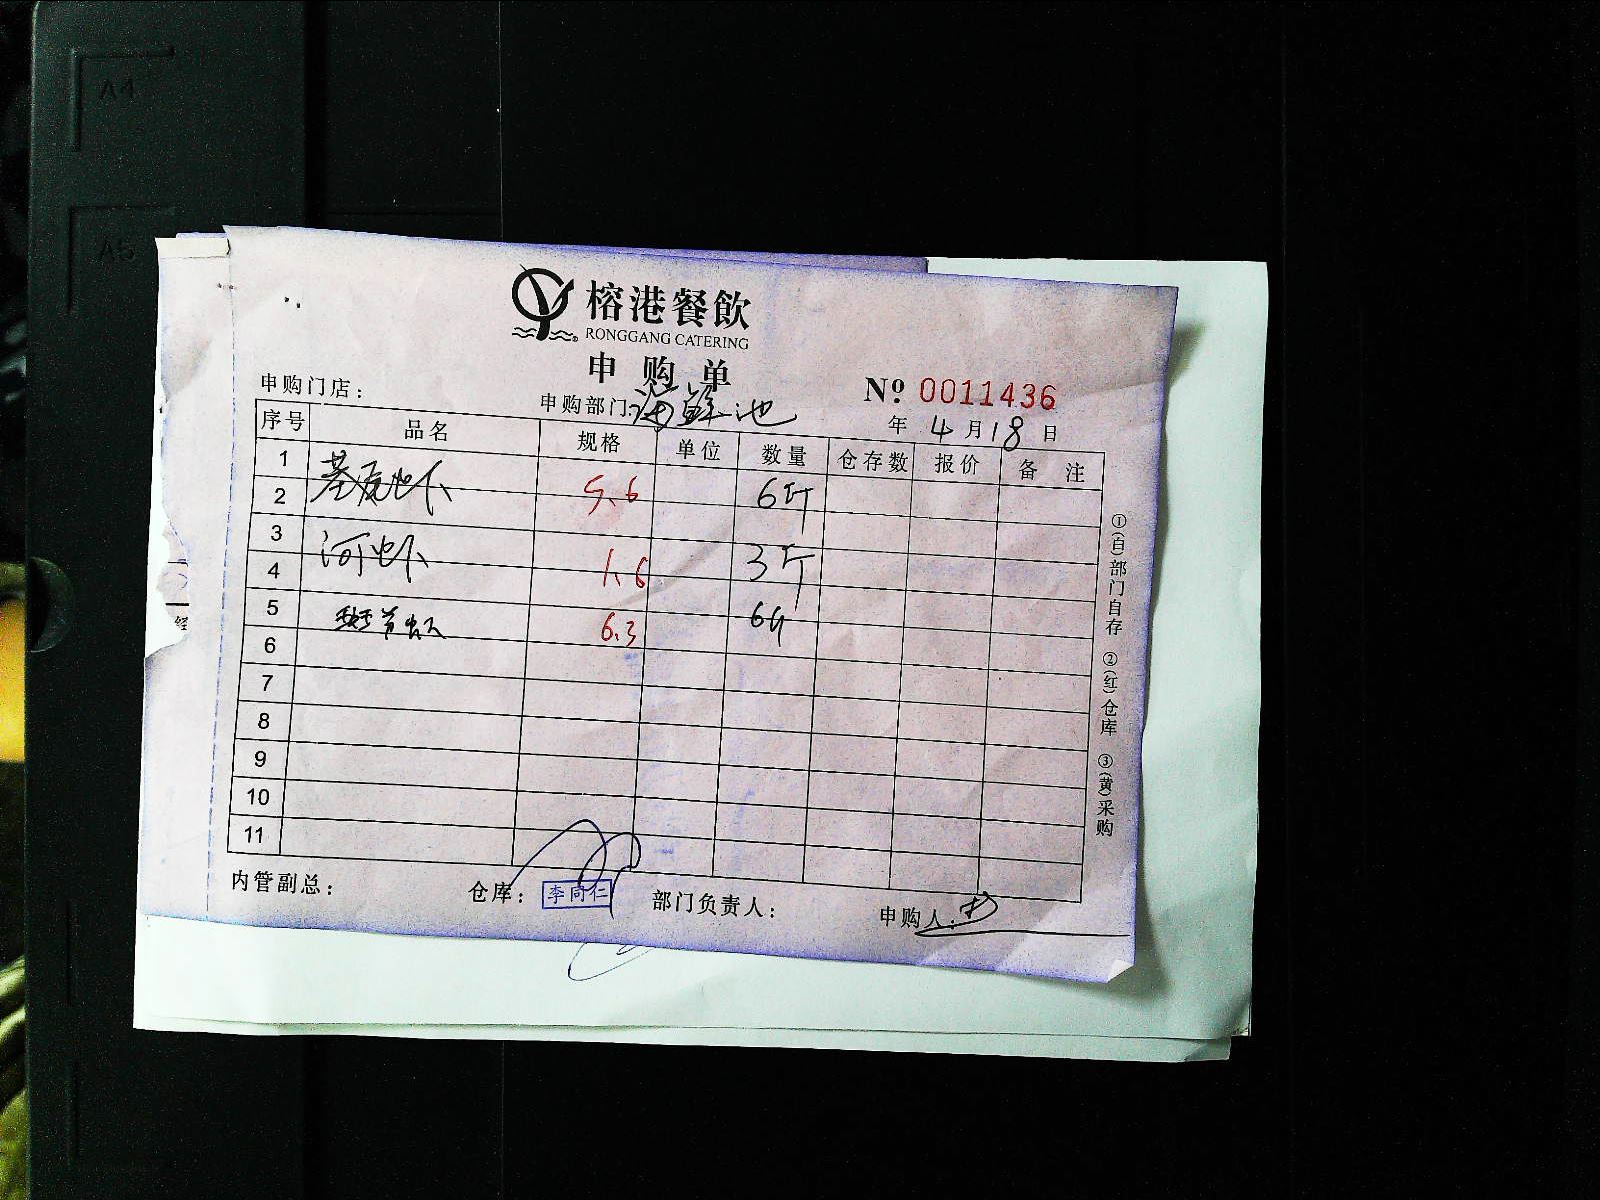 A4
A5
榕港餐飲
RONGGANG CATERING
申购单
申购门店：
申购部门：海鲜池
№ 0011436
年 4 月 18 日
序号 品名 规格 单位 数量 仓存数 报价 备注
1
基尾虾 5.6 6斤
2
3
河虾 1.6 3斤
4
5
斑节虾 6.3 6斤
6
7
8
9
10
11
①(白)部门自存 ②(红)仓库 ③(黄)采购
内管副总： 仓库： 李同仁 部门负责人： 申购人：
经